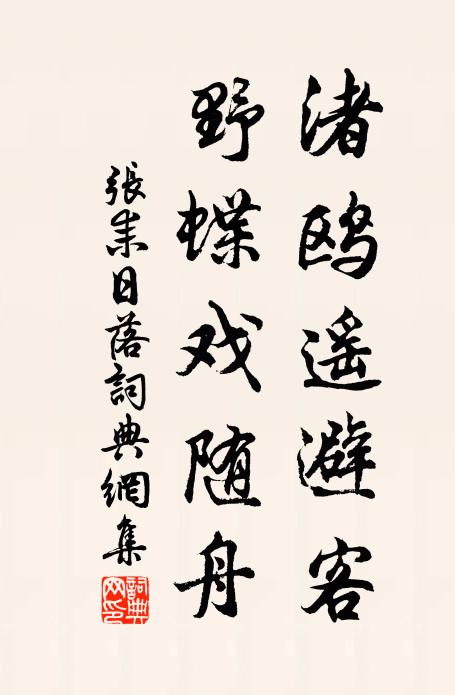 渚鸥遥避客
野蝶戏随舟
張耒日落詞典網集
詞典網印